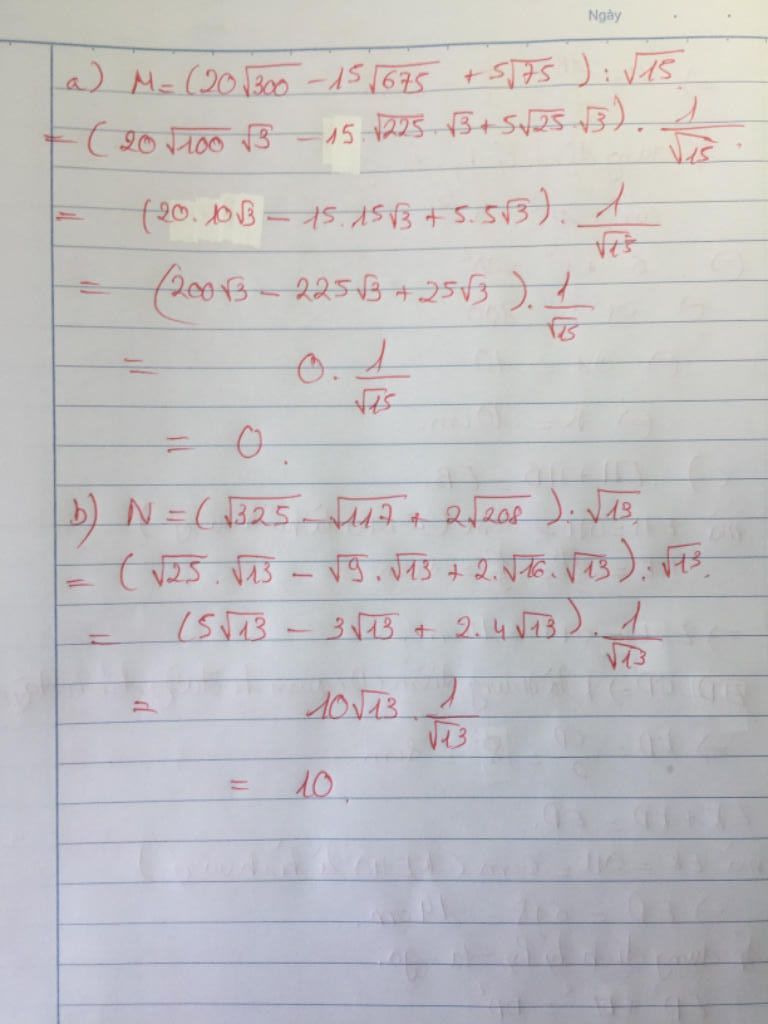 Ngày
a) M = (20√300 - 15√675 + 5√75) : √15
= (20√100 √3 - 15 . √225 . √3 + 5√25 . √3) . 1/√15 .
= (20.10√3 - 15.15√3 + 5.5√3) . 1/√15
= (200√3 - 225√3 + 25√3) . 1/√15
= 0 . 1/√15
= 0 .
b) N = (√325 - √117 + 2√208) : √13
= (√25 . √13 - √9 . √13 + 2.√16 . √13) : √13.
= (5√13 - 3√13 + 2.4√13) . 1/√13
= 10√13 . 1/√13
= 10 .